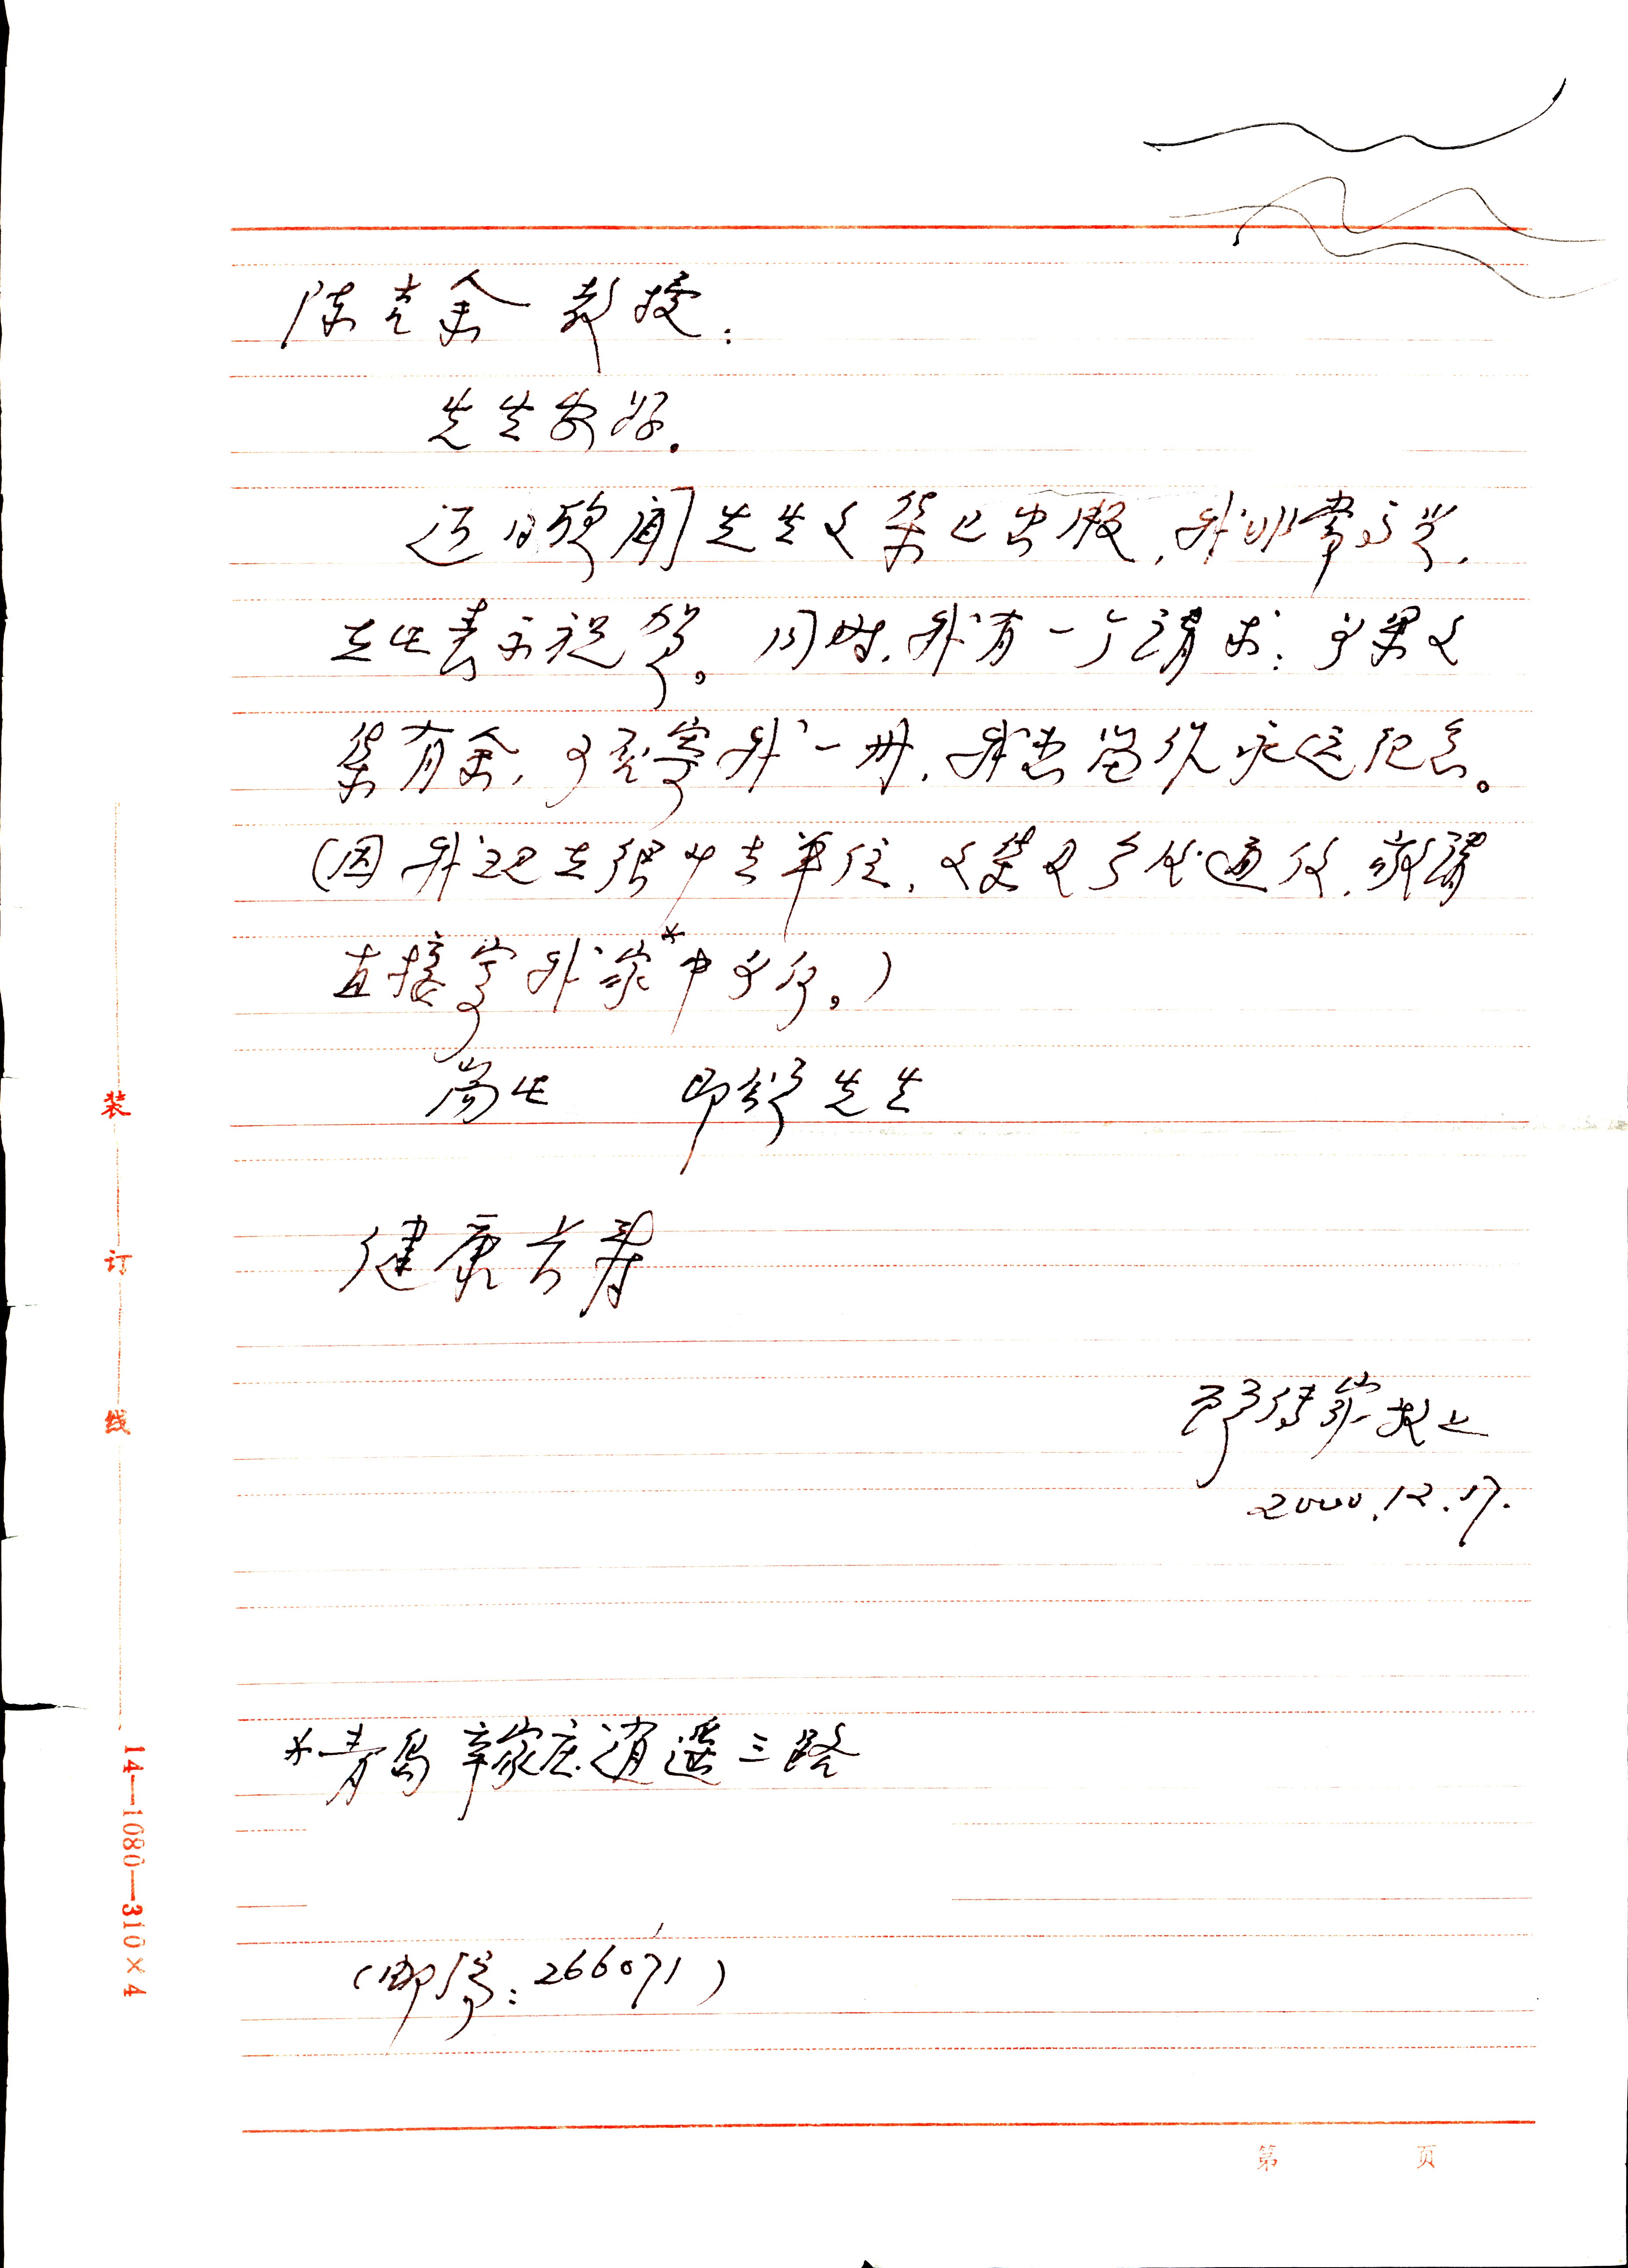 陈克余 教授:
先生安好.
近日欣闻先生文集已出版,我非常高兴,
在此表示祝贺。同时,我有一个请求:如果文
集有余,可否寄我一册,我当留作永远纪念。
(因我现在很少去单位,文集又多仗通信,敬请
直接寄我家*中可行。)
尚此 即祝先生
健康长寿
敬上
2000.12.17.
*青岛 辛家庄逍遥三路
(邮编:266071)
装
订
线
14—1080—310×4
第 页